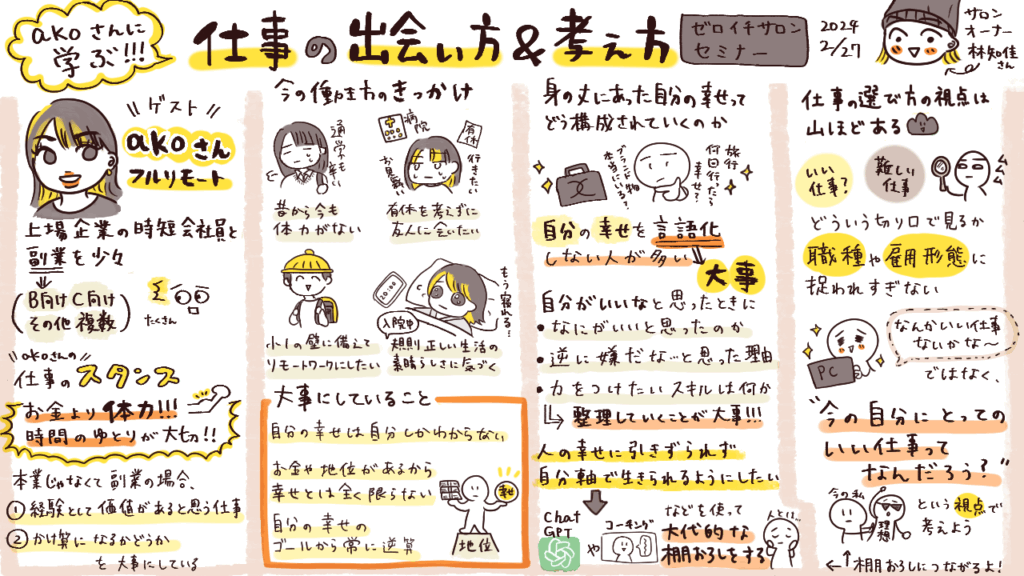 akoさんに
学ぶ!!!
仕事の出会い方&考え方
ゼロイチサロン
セミナー
2024
2/27
サロン
オーナー
林知佳
さん
ゲスト
akoさん
フルリモート
上場企業の時短会社員と
副業を少々
B向け C向け
その他 複数
たくさん
akoさんの
仕事のスタンス
お金より体力!!!
時間のゆとりが大切!!
本業じゃなくて副業の場合、
① 経験として価値があると思う仕事
② かけ算になるかどうか
を大事にしている
今の働き方のきっかけ
通学も
辛い
昔から今も
体力がない
病院
お見舞い
有休
行きたい
有休を考えずに
友人に会いたい
小1の壁に備えて
リモートワークにしたい
20:00
入院中
もう寝れる!
規則正しい生活の
素晴らしさに気づく
大事にしていること
自分の幸せは自分しかわからない
お金や地位があるから
幸せとは全く限らない
自分の幸せの
ゴールから常に逆算
幸せ
地位
身の丈にあった自分の幸せって
どう構成されていくのか
ブランド物
本当にいる?
旅行
何回行ったら
幸せ?
自分の幸せを言語化
しない人が多い
大事
自分がいいなと思ったときに
・なにがいいと思ったのか
・逆に嫌だな…と思った理由
・力をつけたいスキルは何か
整理していくことが大事!!!
人の幸せに引きずられず
自分軸で生きられるようにしたい
Chat
GPT
や
コーキング
などを使って
大代的な
棚おろしをする
仕事の選び方の視点は
山ほどある
いい
仕事?
難しい
仕事
どういう切り口で見るか
職種や雇用形態に
捉われすぎない
PC
なんかいい仕事
ないかな〜
ではなく、
"今の自分にとっての
いい仕事って
なんだろう?"
今の私
理想
という視点で
考えよう
棚おろしにつながるよ!